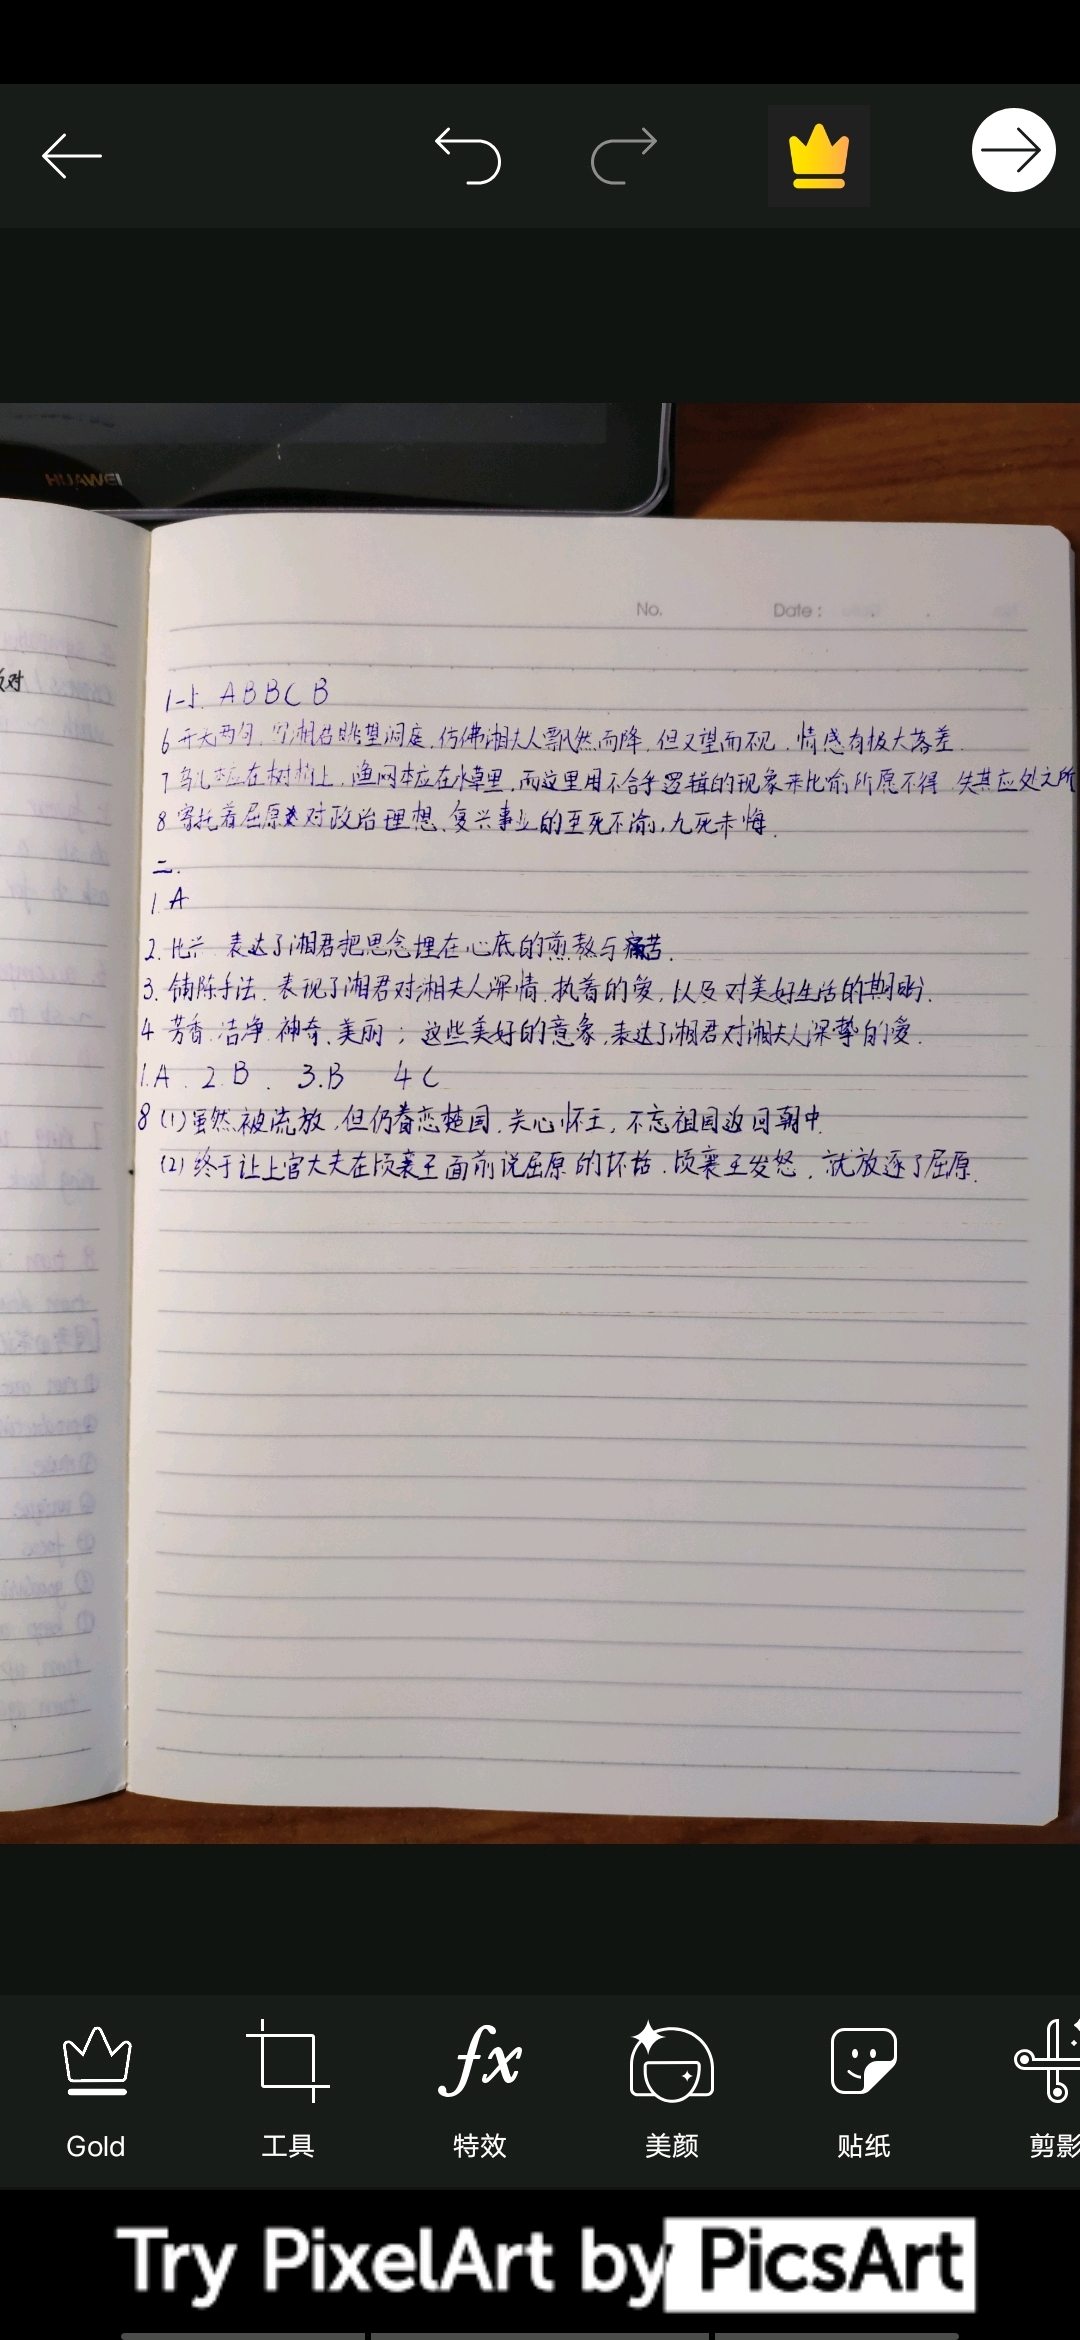 HUAWEI
No. Date:
反对
1-5. A B B C B
6 开头两句,写湘君眺望洞庭,仿佛湘夫人飘然而降,但又望而不见,情感有极大落差.
7 鸟儿本应在树梢上,渔网本应在水草里,而这里用不合乎逻辑的现象来比喻所愿不得,失其应处之所
8 寄托着屈原对政治理想、复兴事业的至死不渝,九死未悔.
二.
1. A
2. 比兴 表达了湘君把思念埋在心底的煎熬与痛苦.
3. 铺陈手法.表现了湘君对湘夫人深情、执着的爱,以及对美好生活的期盼.
4 芳香、洁净、神奇、美丽;这些美好的意象,表达了湘君对湘夫人深挚的爱.
1.A. 2.B. 3.B 4 C
8 (1)虽然被流放,但仍眷恋楚国,关心怀王,不忘祖国返回朝中.
(2)终于让上官大夫在顷襄王面前说屈原的坏话.顷襄王发怒,就放逐了屈原.
Gold 工具 特效 美颜 贴纸 剪影
Try PixelArt by PicsArt